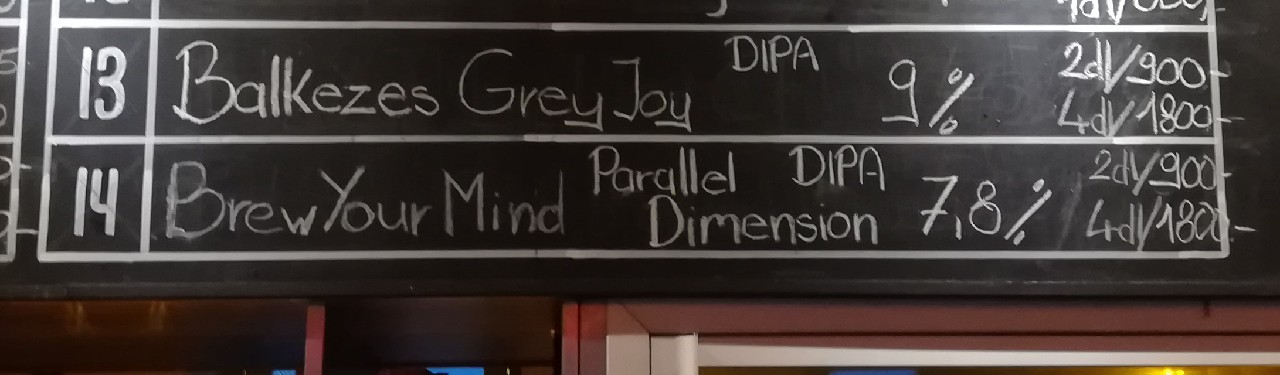 13 Balkezes Grey Joy DIPA 9% 2dl/900-
4dl/1800-
14 Brew Your Mind Parallel DIPA 7,8% 2dl/900-
Dimension 4dl/1800-